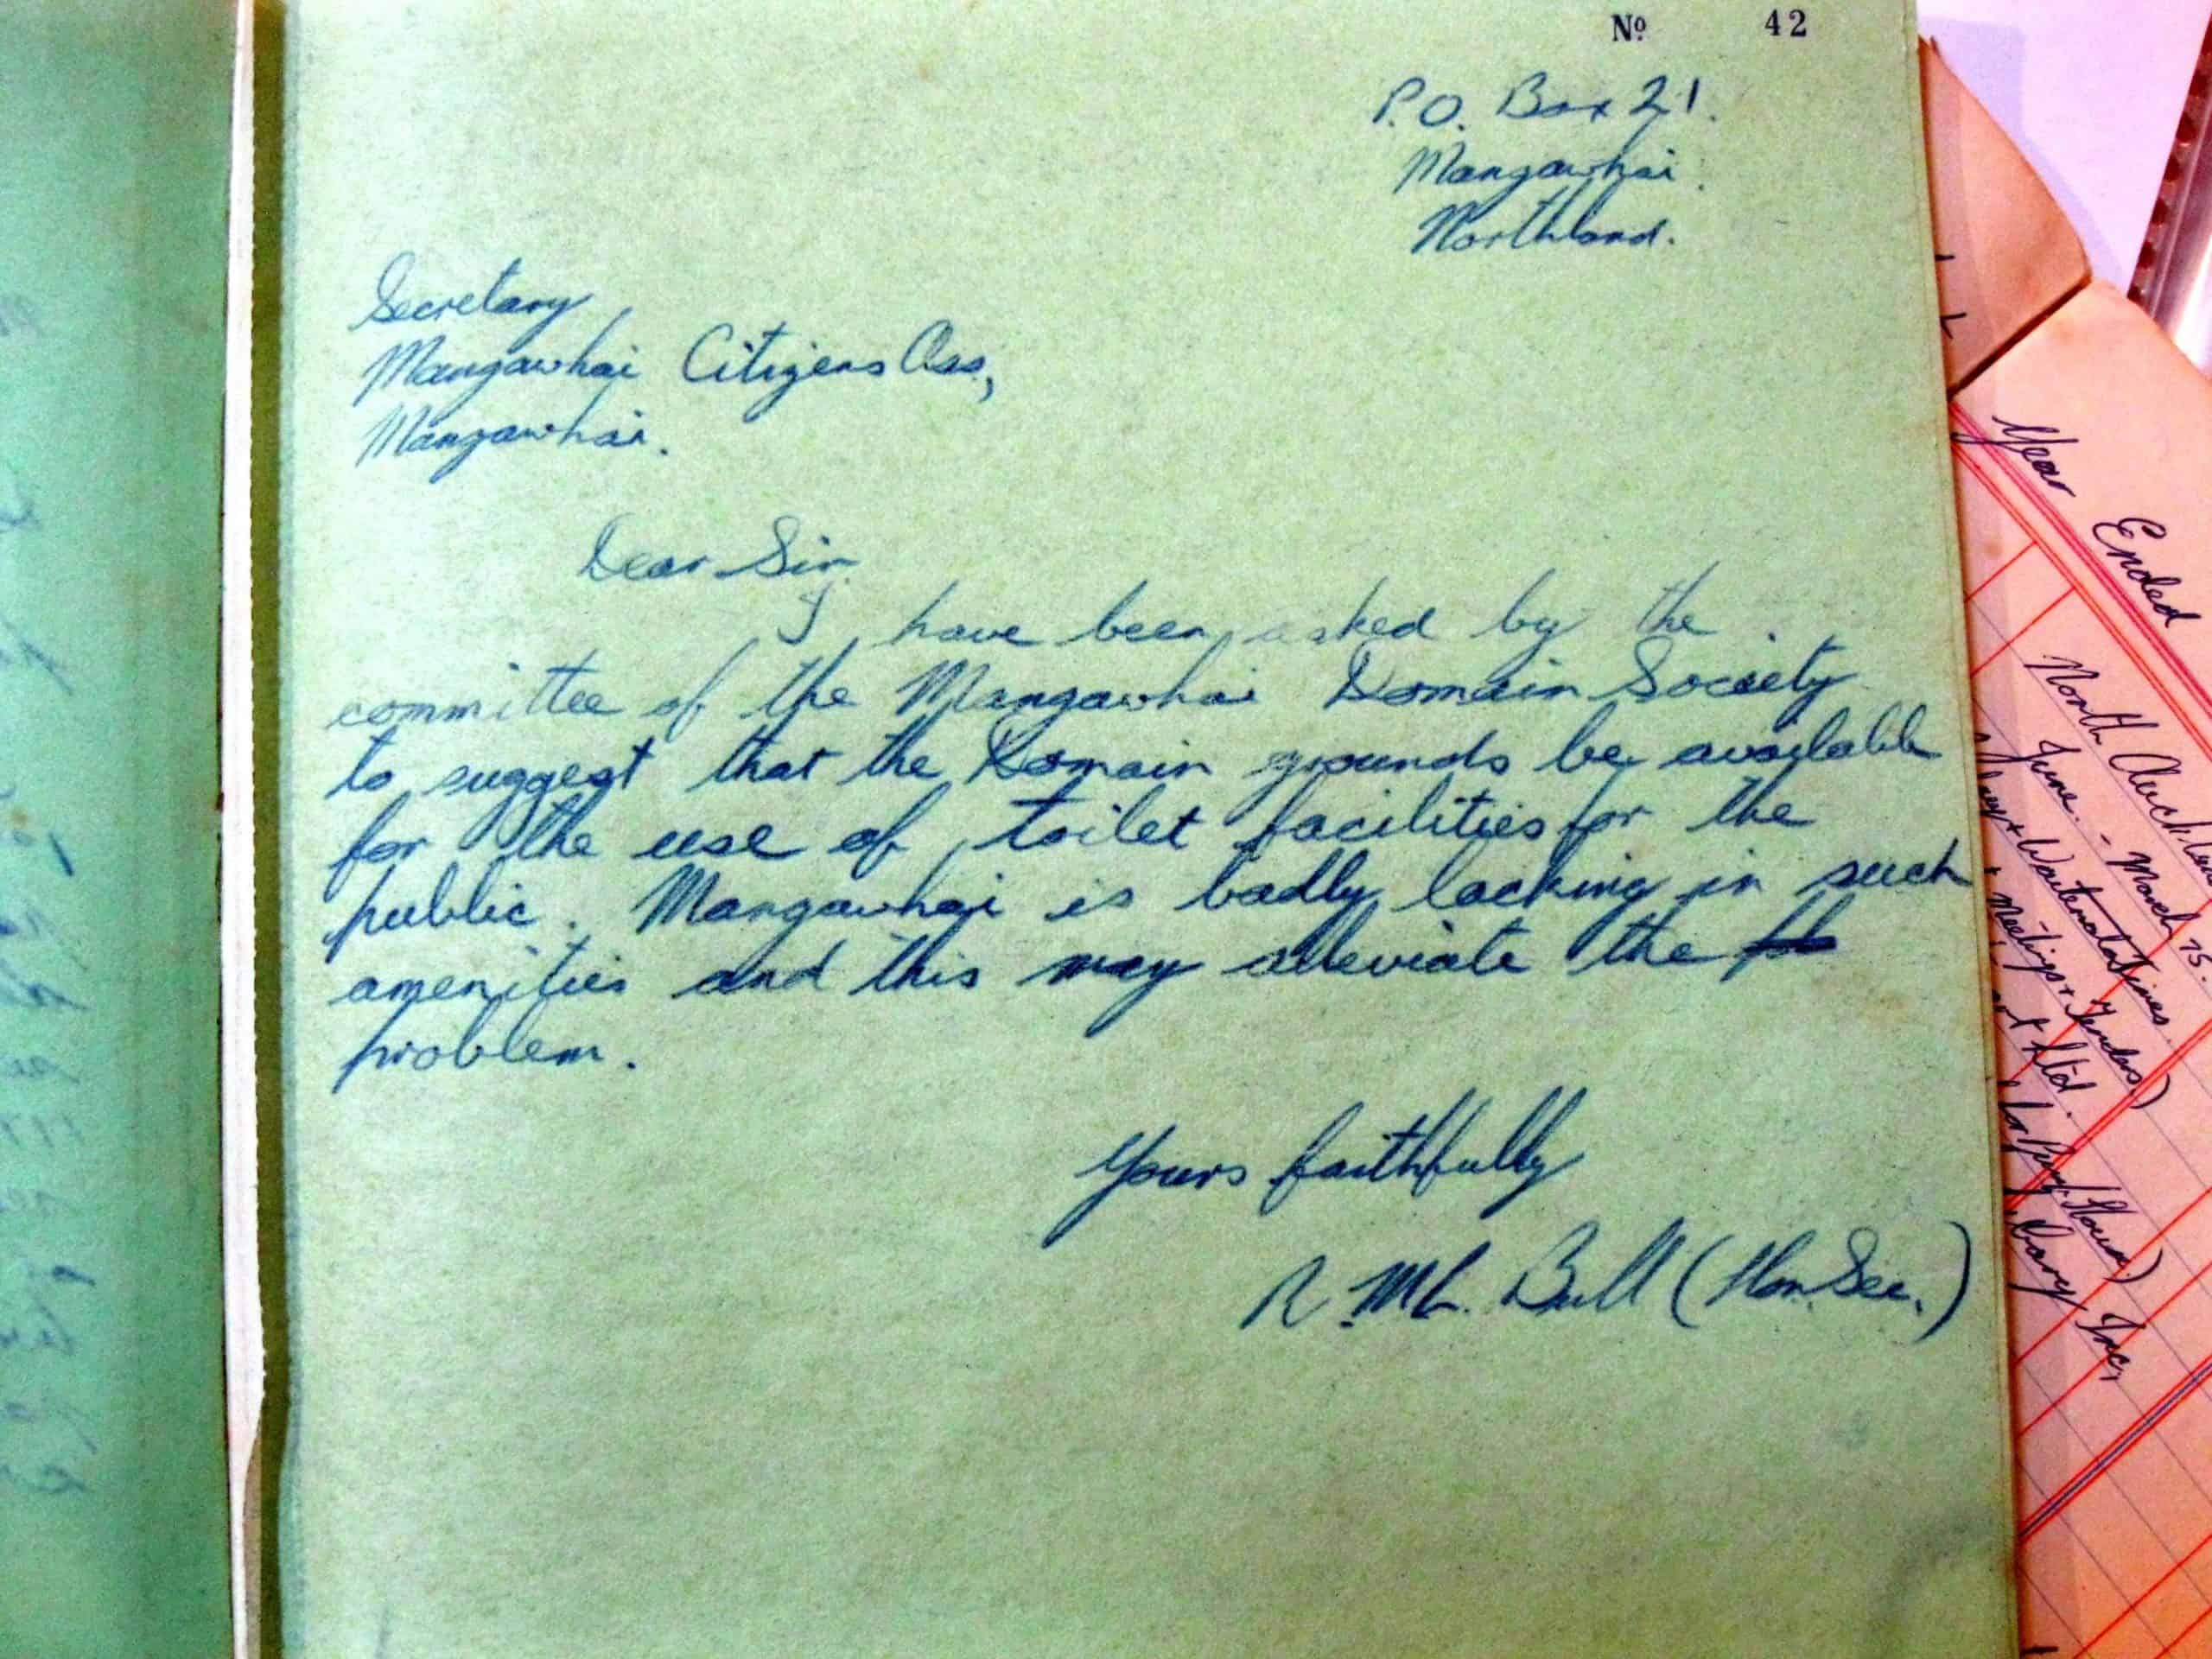 Nº 42
P.O. Box 21.
Mangawhai.
Northland.
Secretary
Mangawhai Citizens Ass,
Mangawhai.
Dear Sir
I have been asked by the
committee of the Mangawhai Domain Society
to suggest that the Domain grounds be available
for the use of toilet facilities for the
public. Mangawhai is badly lacking in such
amenities and this may alleviate the
problem.
Yours faithfully
R. ML. Bull (Hon. Sec.)
Year Ended
North Auckland
June. - March 75.
Waitemata Times
Meetings + Tenders)
Ltd.
Inc,